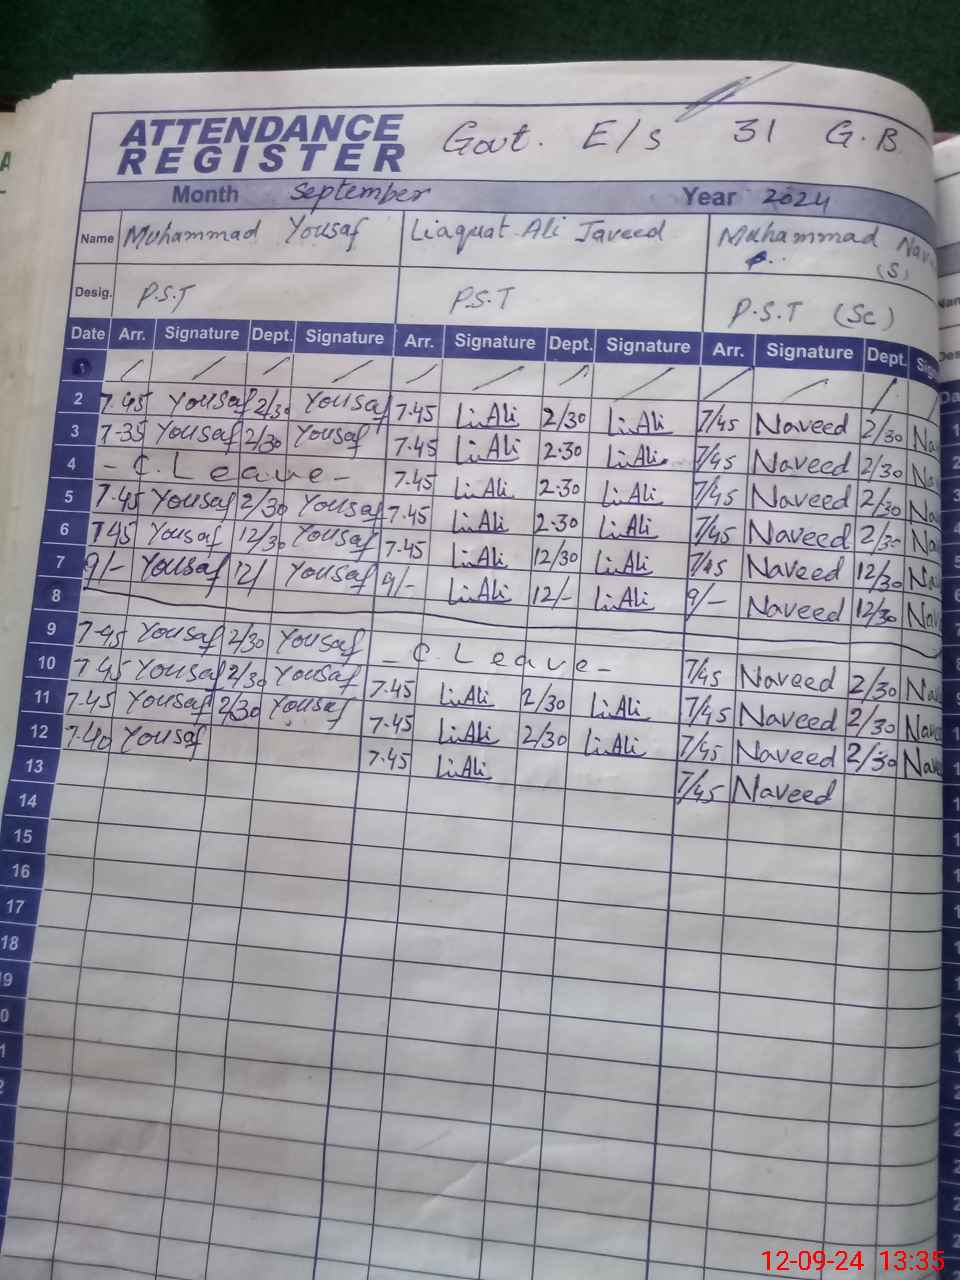 ATTENDANCE REGISTER Govt. E/s 31 G.B.
Month September Year 2024
Name Muhammad Yousaf Liaquat Ali Javeed Muhammad Nav
(S)
Desig. P.S.T P.S.T P.S.T (Sc)
Date Arr. Signature Dept. Signature Arr. Signature Dept. Signature Arr. Signature Dept. Sig
1
2 7.45 Yousaf 2/30 Yousaf 7.45 Li.Ali 2/30 Li.Ali 7/45 Naveed 2/30 Na
3 7.35 Yousaf 2/30 Yousaf 7.45 Li.Ali 2.30 Li.Ali 7/45 Naveed 2/30 Na
4 - C. Leave - 7.45 Li.Ali 2.30 Li.Ali 7/45 Naveed 2/30 Na
5 7.45 Yousaf 2/30 Yousaf 7.45 Li.Ali 2.30 Li.Ali 7/45 Naveed 2/30 Na
6 7.45 Yousaf 12/30 Yousaf 7.45 Li.Ali 12/30 Li.Ali 7/45 Naveed 12/30 Na
7 9/- Yousaf 12/ Yousaf 9/- Li.Ali 12/- Li.Ali 9/- Naveed 12/30 Nav
8
9 7.45 Yousaf 2/30 Yousaf - C. Leave - 7/45 Naveed 2/30 Na
10 7.45 Yousaf 2/30 Yousaf 7.45 Li.Ali 2/30 Li.Ali 7/45 Naveed 2/30 Nav
11 7.45 Yousaf 2/30 Yousaf 7.45 Li.Ali 2/30 Li.Ali 7/45 Naveed 2/30 Nav
12 7.40 Yousaf 7.45 Li.Ali 7/45 Naveed
13
14
15
16
17
18
9
0
1
2
12-09-24 13:35